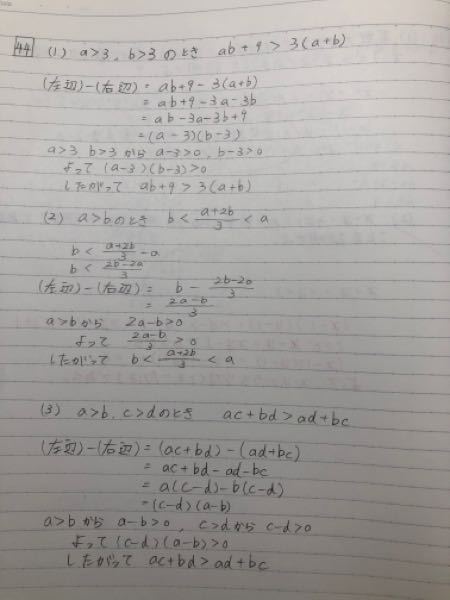 44 (1) a>3, b>3 のとき ab+9 > 3(a+b)
(左辺)-(右辺) = ab+9-3(a+b)
= ab+9-3a-3b
= ab-3a-3b+9
= (a-3)(b-3)
a>3 b>3 から a-3>0, b-3>0
よって (a-3)(b-3)>0
したがって ab+9>3(a+b)
(2) a>b のとき b < \frac{a+2b}{3} < a
b < \frac{a+2b}{3} -a
b < \frac{2b-2a}{3}
(左辺)-(右辺) = b - \frac{2b-2a}{3}
= \frac{2a-b}{3}
a>b から 2a-b>0
よって \frac{2a-b}{3} > 0
したがって b < \frac{a+2b}{3} < a
(3) a>b, c>d のとき ac+bd > ad+bc
(左辺)-(右辺) = (ac+bd)-(ad+bc)
= ac+bd-ad-bc
= a(c-d)-b(c-d)
= (c-d)(a-b)
a>b から a-b>0, c>d から c-d>0
よって (c-d)(a-b)>0
したがって ac+bd>ad+bc